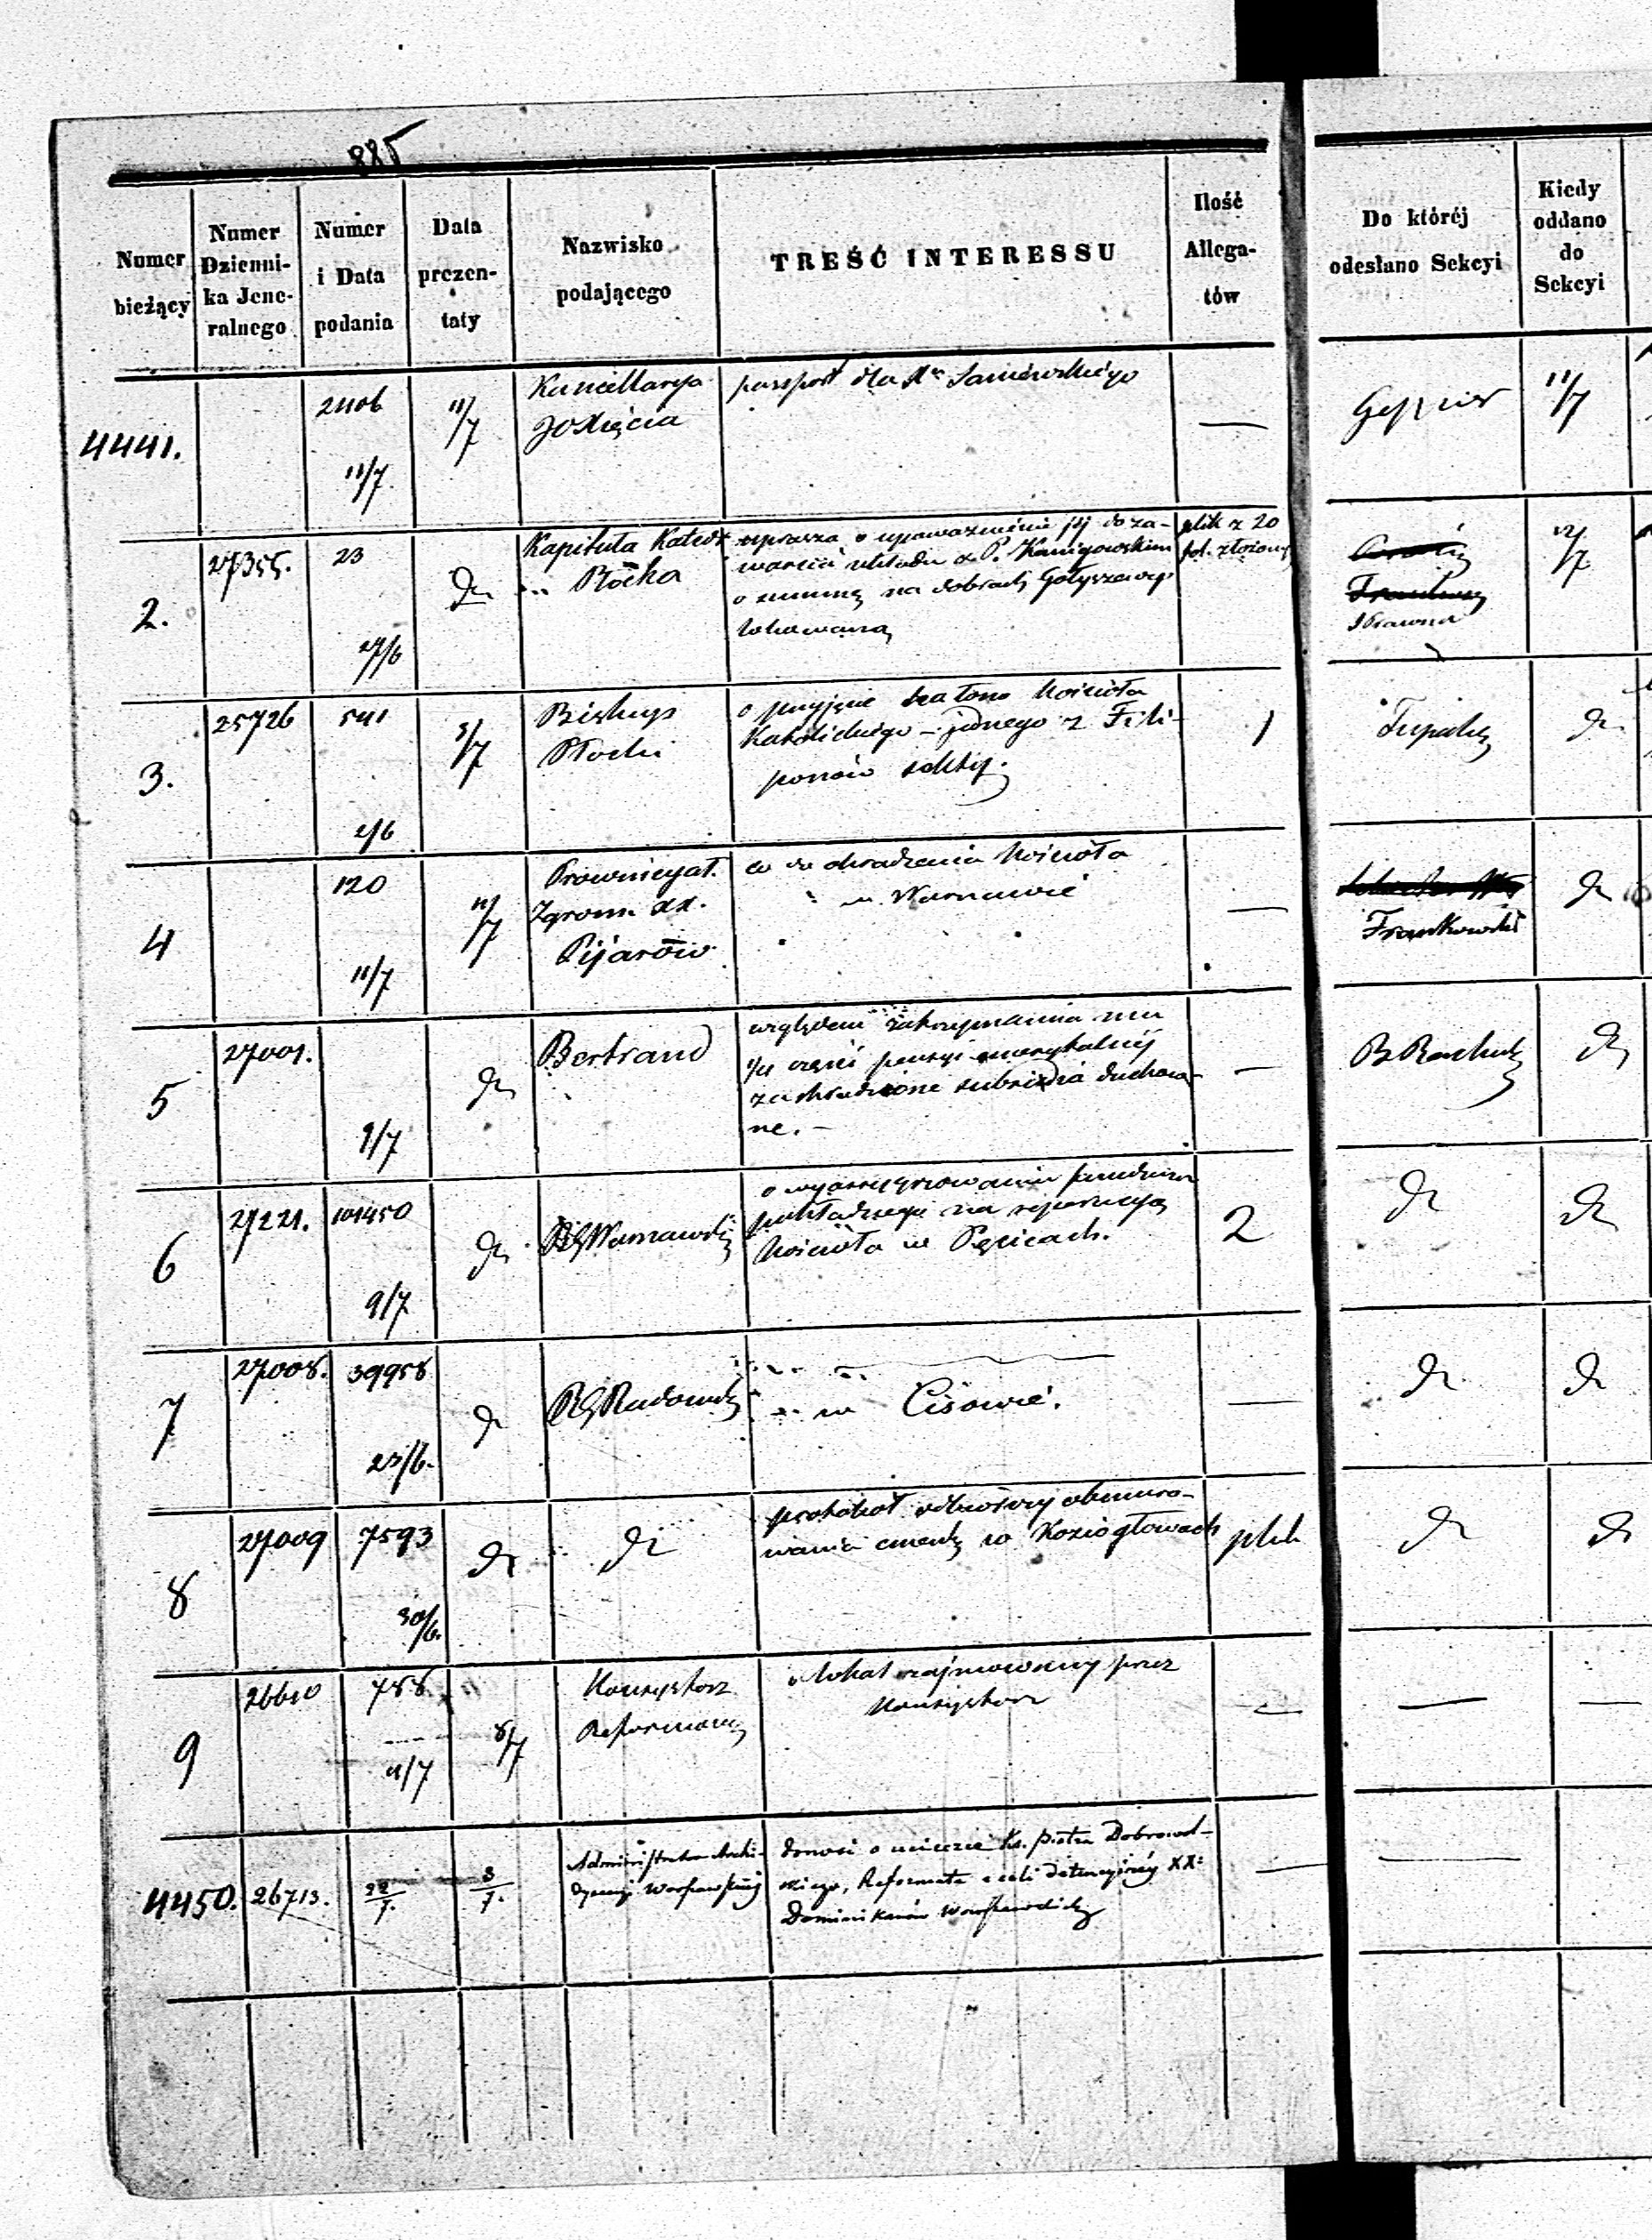 885
Numer bieżący
Numer Dzienni-ka Jene-ralnego
Numer i Data podania
Data prezen-taty
Nazwisko podającego
TREŚĆ INTERESSU
Ilość Allega-tów
Do któréj odesłano Sekcyi
Kiedy oddano do Sekcyi
4441.
2406
11/7
11/7
Kancellarya
JOXięcia
passport dla
—
11/7
2.
27355.
23
27/6
dto
Kapituła Katedr
Płocka
uprasza o upoważnienie jéj do za-
warcia układu z P.
o summę na dobrach Gołyszewep
lokowaną
plik z 20
pol. złożony
12/7
3.
25726
541
2/6
5/7
Biskup
Płocki
o przyjęcie na łono Kościoła
Katolickiego – jednego z Fili-
ponów sekty.
1
dto
4
120
11/7
11/7
Prowincyał.
Zgrom. XX.
Pijarów
co do okradzenia Kościoła
w Warszawie
—
Frankowski
dto
5
27001.
9/7
dto
Bertrand
względem zatrzymania mu
części pensyi emerytalnéj
za skradzione subsidia duchow-
ne. –
—
dto
6
27221.
101450
9/7
dto
RG Warszawski
o wyassygnowanie funduszu
pokładnego na reperacyą
Kościoła w Pęcicach.
2
dto
dto
7
27008.
39958
23/6.
dto
RG Radomski
" " w Cisowie.
—
dto
dto
8
27009
7593
30/6.
dto
dto
protokół odbiorczy obmuro-
wania cmentrz w Koziogłowach
plik
dto
dto
9
26610
788
4/7
8/7
Konsystorz
Reformowany
o lokal zajmowany przez
Konsystorz
—
—
—
4450.
26713.
3/7.
Administrator Archi-
dyecezyi Warszawskiéj
donosi o ucieczce Ks. Piotra Dobrowol-
skiego, Reformata z celi detencyjnéj XX:
Dominikanów Warszawskich
—
—